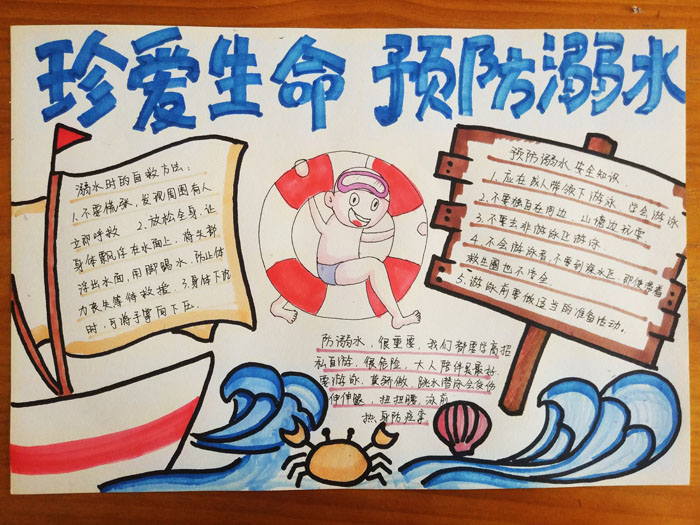 珍爱生命 预防溺水
溺水时的自救方法:
1.不要慌张,发现周围有人
立即呼救 2.放松全身,让
身体飘浮在水面上,将头部
浮出水面,用脚踢水,防止体
力丧失等待救援 3.身体下沉
时,可将手掌向下压。
预防溺水安全知识
1.应在成人带领下游泳 学会游泳
2.不要独自在周边 山塘边玩耍
3.不要去非游泳区游泳
4.不会游泳者,不要到深水区,即使带着
救生圈也不安全
5.游泳前要做适当的准备活动。
防溺水,很重要,我们都要出高招
私自游,很危险,大人陪伴是最好
要游泳,莫 做,跳水潜泳会受伤
伸伸腿,扭扭腰,泳前
热身防痉挛